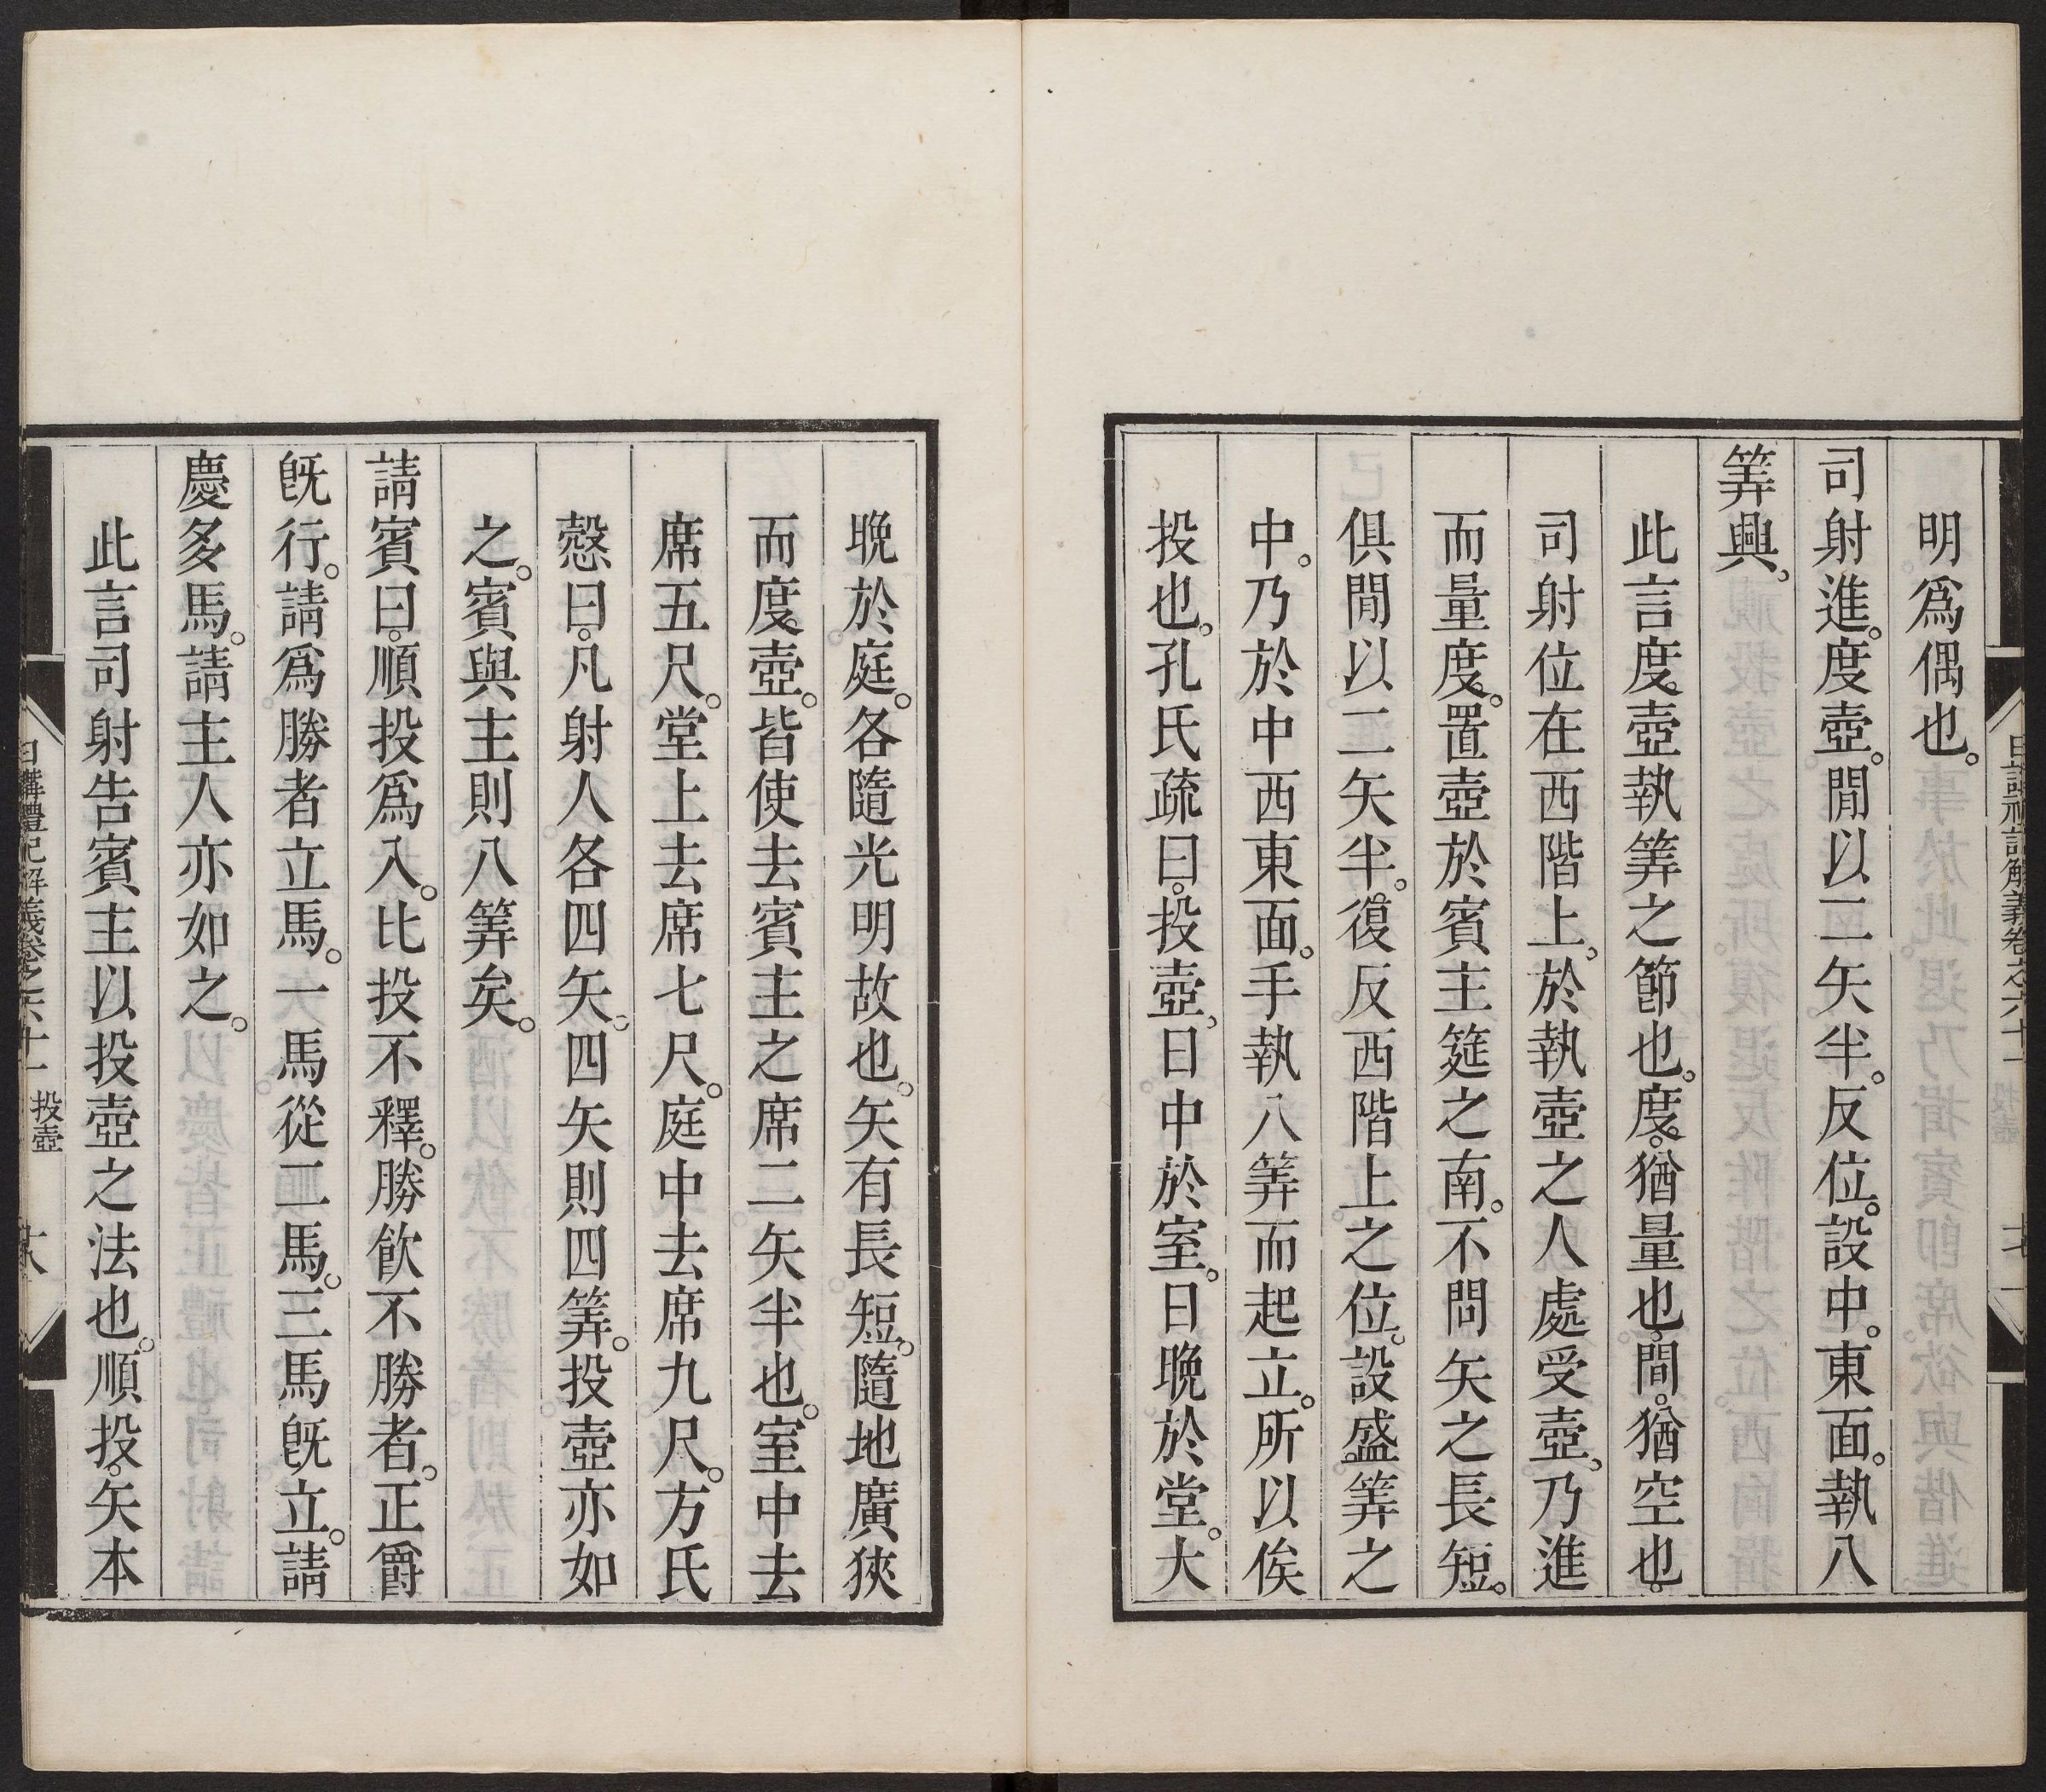 明爲偶也。
司射進。度壺。閒以二矢半。反位。設中。東面。執八
筭興。
此言度壺執筭之節也。度。猶量也。間。猶空也。
司射位在西階上。於執壺之人處受壺。乃進
而量度。置壺於賓主筵之南。不問矢之長短。
俱閒以二矢半。復反西階上之位。設盛筭之
中。乃於中西東面。手執八筭而起立。所以俟
投也。孔氏疏曰。投壺。日中於室。日晚於堂。大
晚於庭。各隨光明故也。矢有長短。隨地廣狹
而度壺。皆使去賓主之席二矢半也。室中去
席五尺。堂上去席七尺。庭中去席九尺。方氏
慤曰。凡射人各四矢。四矢則四筭。投壺亦如
之。賓與主則八筭矣。
請賓曰。順投爲入。比投不釋。勝飲不勝者。正爵
旣行。請爲勝者立馬。一馬從二馬。三馬旣立。請
慶多馬。請主人亦如之。
此言司射告賓主以投壺之法也。順投。矢本
日講禮記解義卷之六十一 投壺 十八